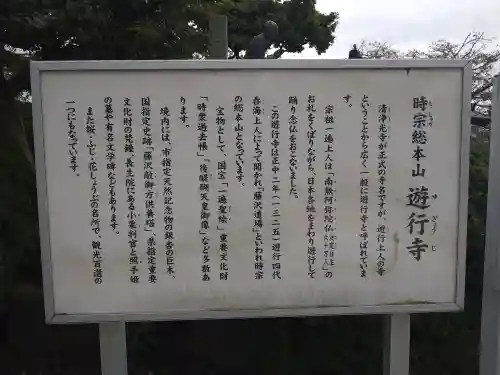 時宗総本山 遊行寺
じしゅう
ゆ ぎょう じ
清浄光寺が正式の寺名ですが、遊行上人の寺
ということから広く一般に遊行寺と呼ばれていま
す。
宗祖一遍上人は「南無阿弥陀仏 決定往生六十万人」の
お札をくばりながら、日本各地をまわり遊行して
踊り念仏をおこないました。
この遊行寺は正中二年(一三二五)遊行四代
呑海上人によって開かれ「藤沢道場」といわれ時宗
の総本山となっています。
宝物として、国宝「一遍聖絵」重要文化財
「時衆過去帳」「後醍醐天皇御像」など多数あ
ります。
境内には、市指定天然記念物の銀杏の巨木、
国指定史跡「藤沢敵御方供養塔」県指定重要
文化財の梵鐘、長生院にある小栗判官と照手姫
の墓や有名文学碑などもあります。
また桜・ふじ・花しょうぶの名所で、観光百選の
一つにもなっています。